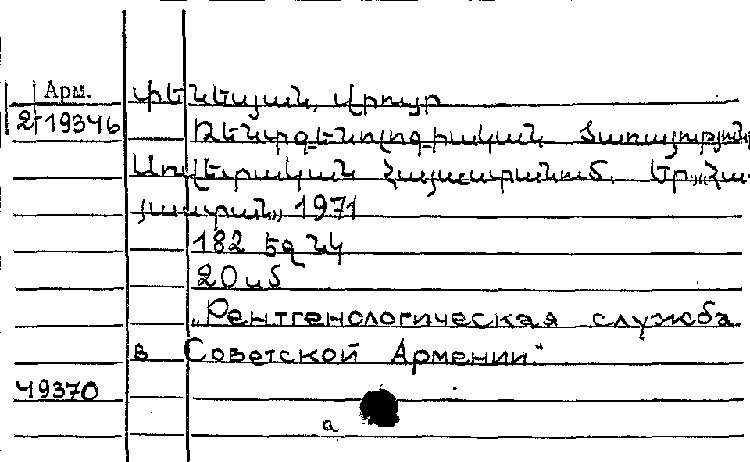 Арм.
2-19346
Փենեսյան, Վրույր
Ռենտգենոլոգիական ծառայությունը
Սովետական Հայաստանում. Եր., „Հա-
յաստան„ 1971
182 էջ նկ
20 սմ
„Рентгенологическая служба
в Советской Армении."
49370
а